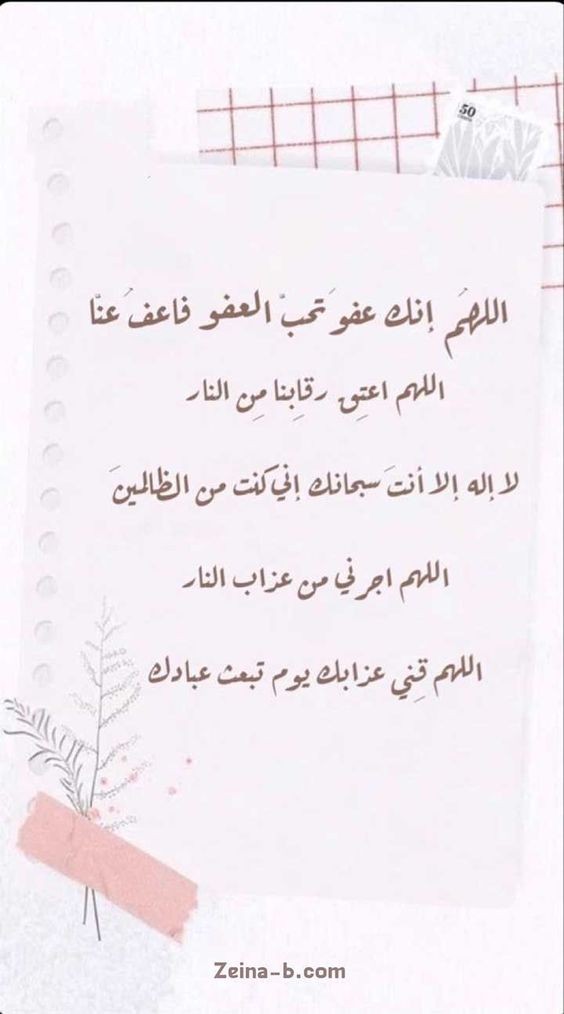 50
اللهُم إنك عفوَ تحبّ العفو فاعفُ عنّا
اللهم اعتِق رقابِنا مِن النار
لا إله إلا أنتَ سبحانك إني كنت من الظالمينَ
اللهم اجرني من عزاب النار
اللهم قِني عزابك يوم تبعث عبادك
Zeina-b.com